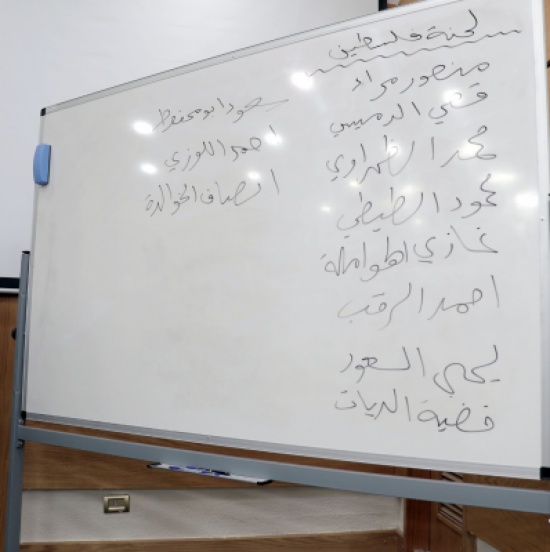 لجنة فلسطين
منصور مراد
قصي الدميسي
محمد الظهراوي
محمود الطيطي
غازي الهواملة
احمد الرقب
يحيى السعود
قضية الديات
سعود ابو محفوظ
احمد اللوزي
انصاف الخوالدة